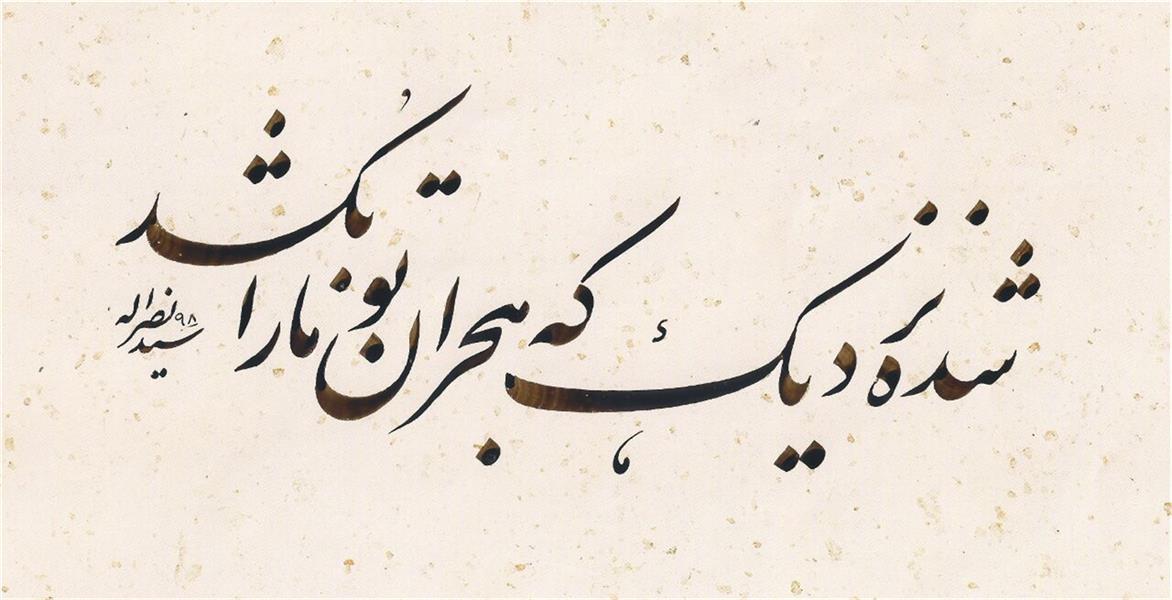 شده نزدیک که هجران تو ما را بکشد
سید نصراله ۹۸